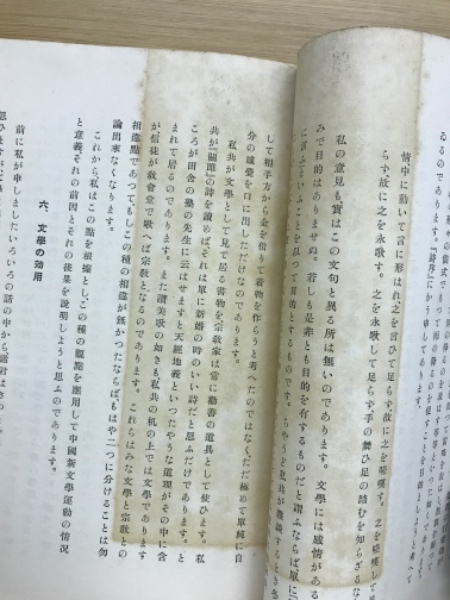 ゐるのであります。『詩序』にかう申してあります。
情中に動いて言に形はれ、之を言ひて足らず故に之を嗟嘆す。之を嗟嘆して足
らず故に之を永歌す。之を永歌して足らず、手の舞ひ足の踏むを知らざるな
私の意見も實はこの文句と異る所は無いのであります。文學には感情がある
みで目的はありませぬ。若しも是非とも目的を有するものだと謂ふならば、單に
に言ふ」といふことを以つて目的とするものです。
して相手方から金を借りて着物を作らうと考へたのではなく、ただ極めて單純に自
分の感覺を口に出しただけなのであります。
私共が文學として見て居る書物を宗敎家は常に勸善の道具として使ひます。私
共が『關雎』の詩を讀めば、それは單に新婚の時のいい詩だと思ふだけであります。と
ころが田舍の塾の先生に云はせますと天經地義といつたやうな道理がその中に含
まれて居るのであります。また讚美歌の如きも私共の机の上では文學であります
が、信徒が敎會堂で歌へば宗敎となるのであります。これらはみな文學と宗敎との
相違點であつて、もしこの種の相違が無かつたならば、もはや二つに分けることは勿
論出來なくなります。
これから、私はこの點を根據とし、この種の觀點を應用して中國新文學運動の情況
と意義、それの前因とそれの後果を說明しようと思ふのであります。
六、文學の効用
前に私が申しましたいろいろの話の中から